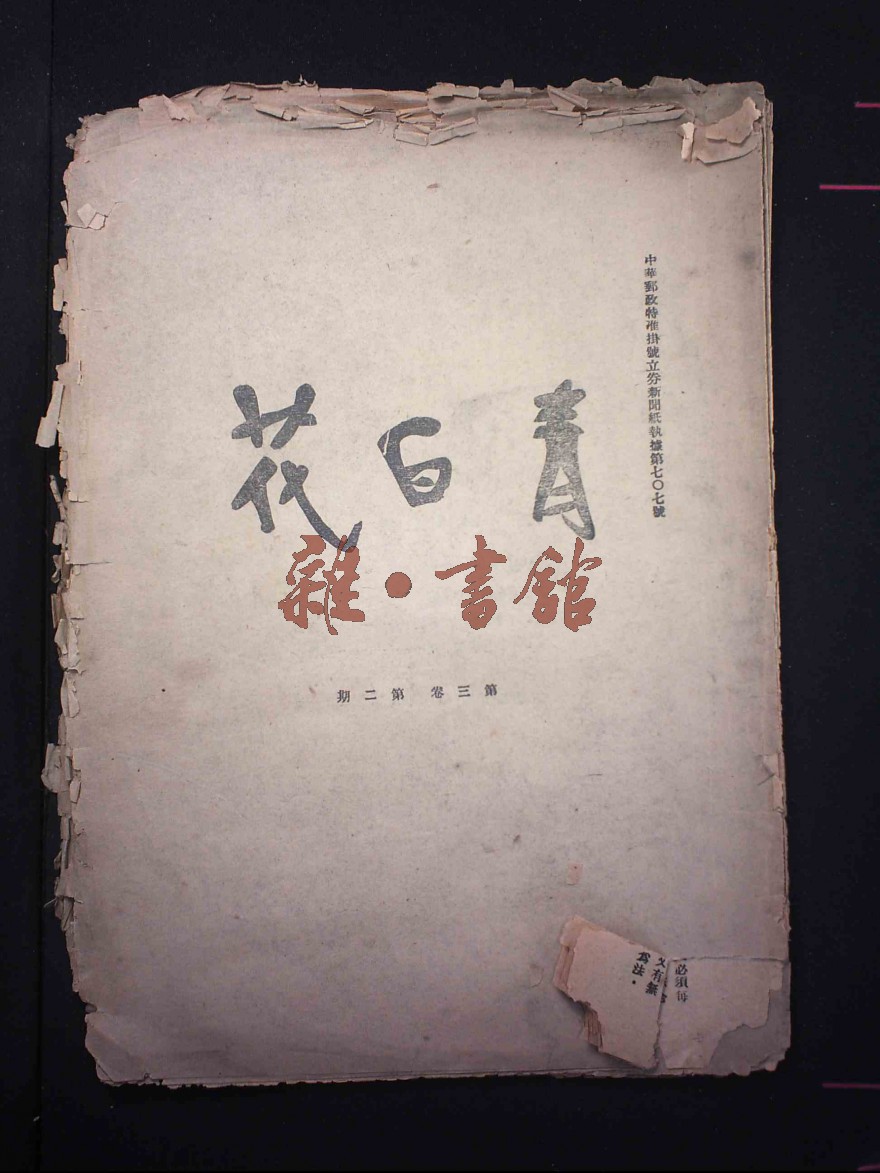 中華郵政特准掛號立券新聞紙執據第七〇七號
青白花
雜·書館
第三卷 第二期
必須每
有無
爲法。